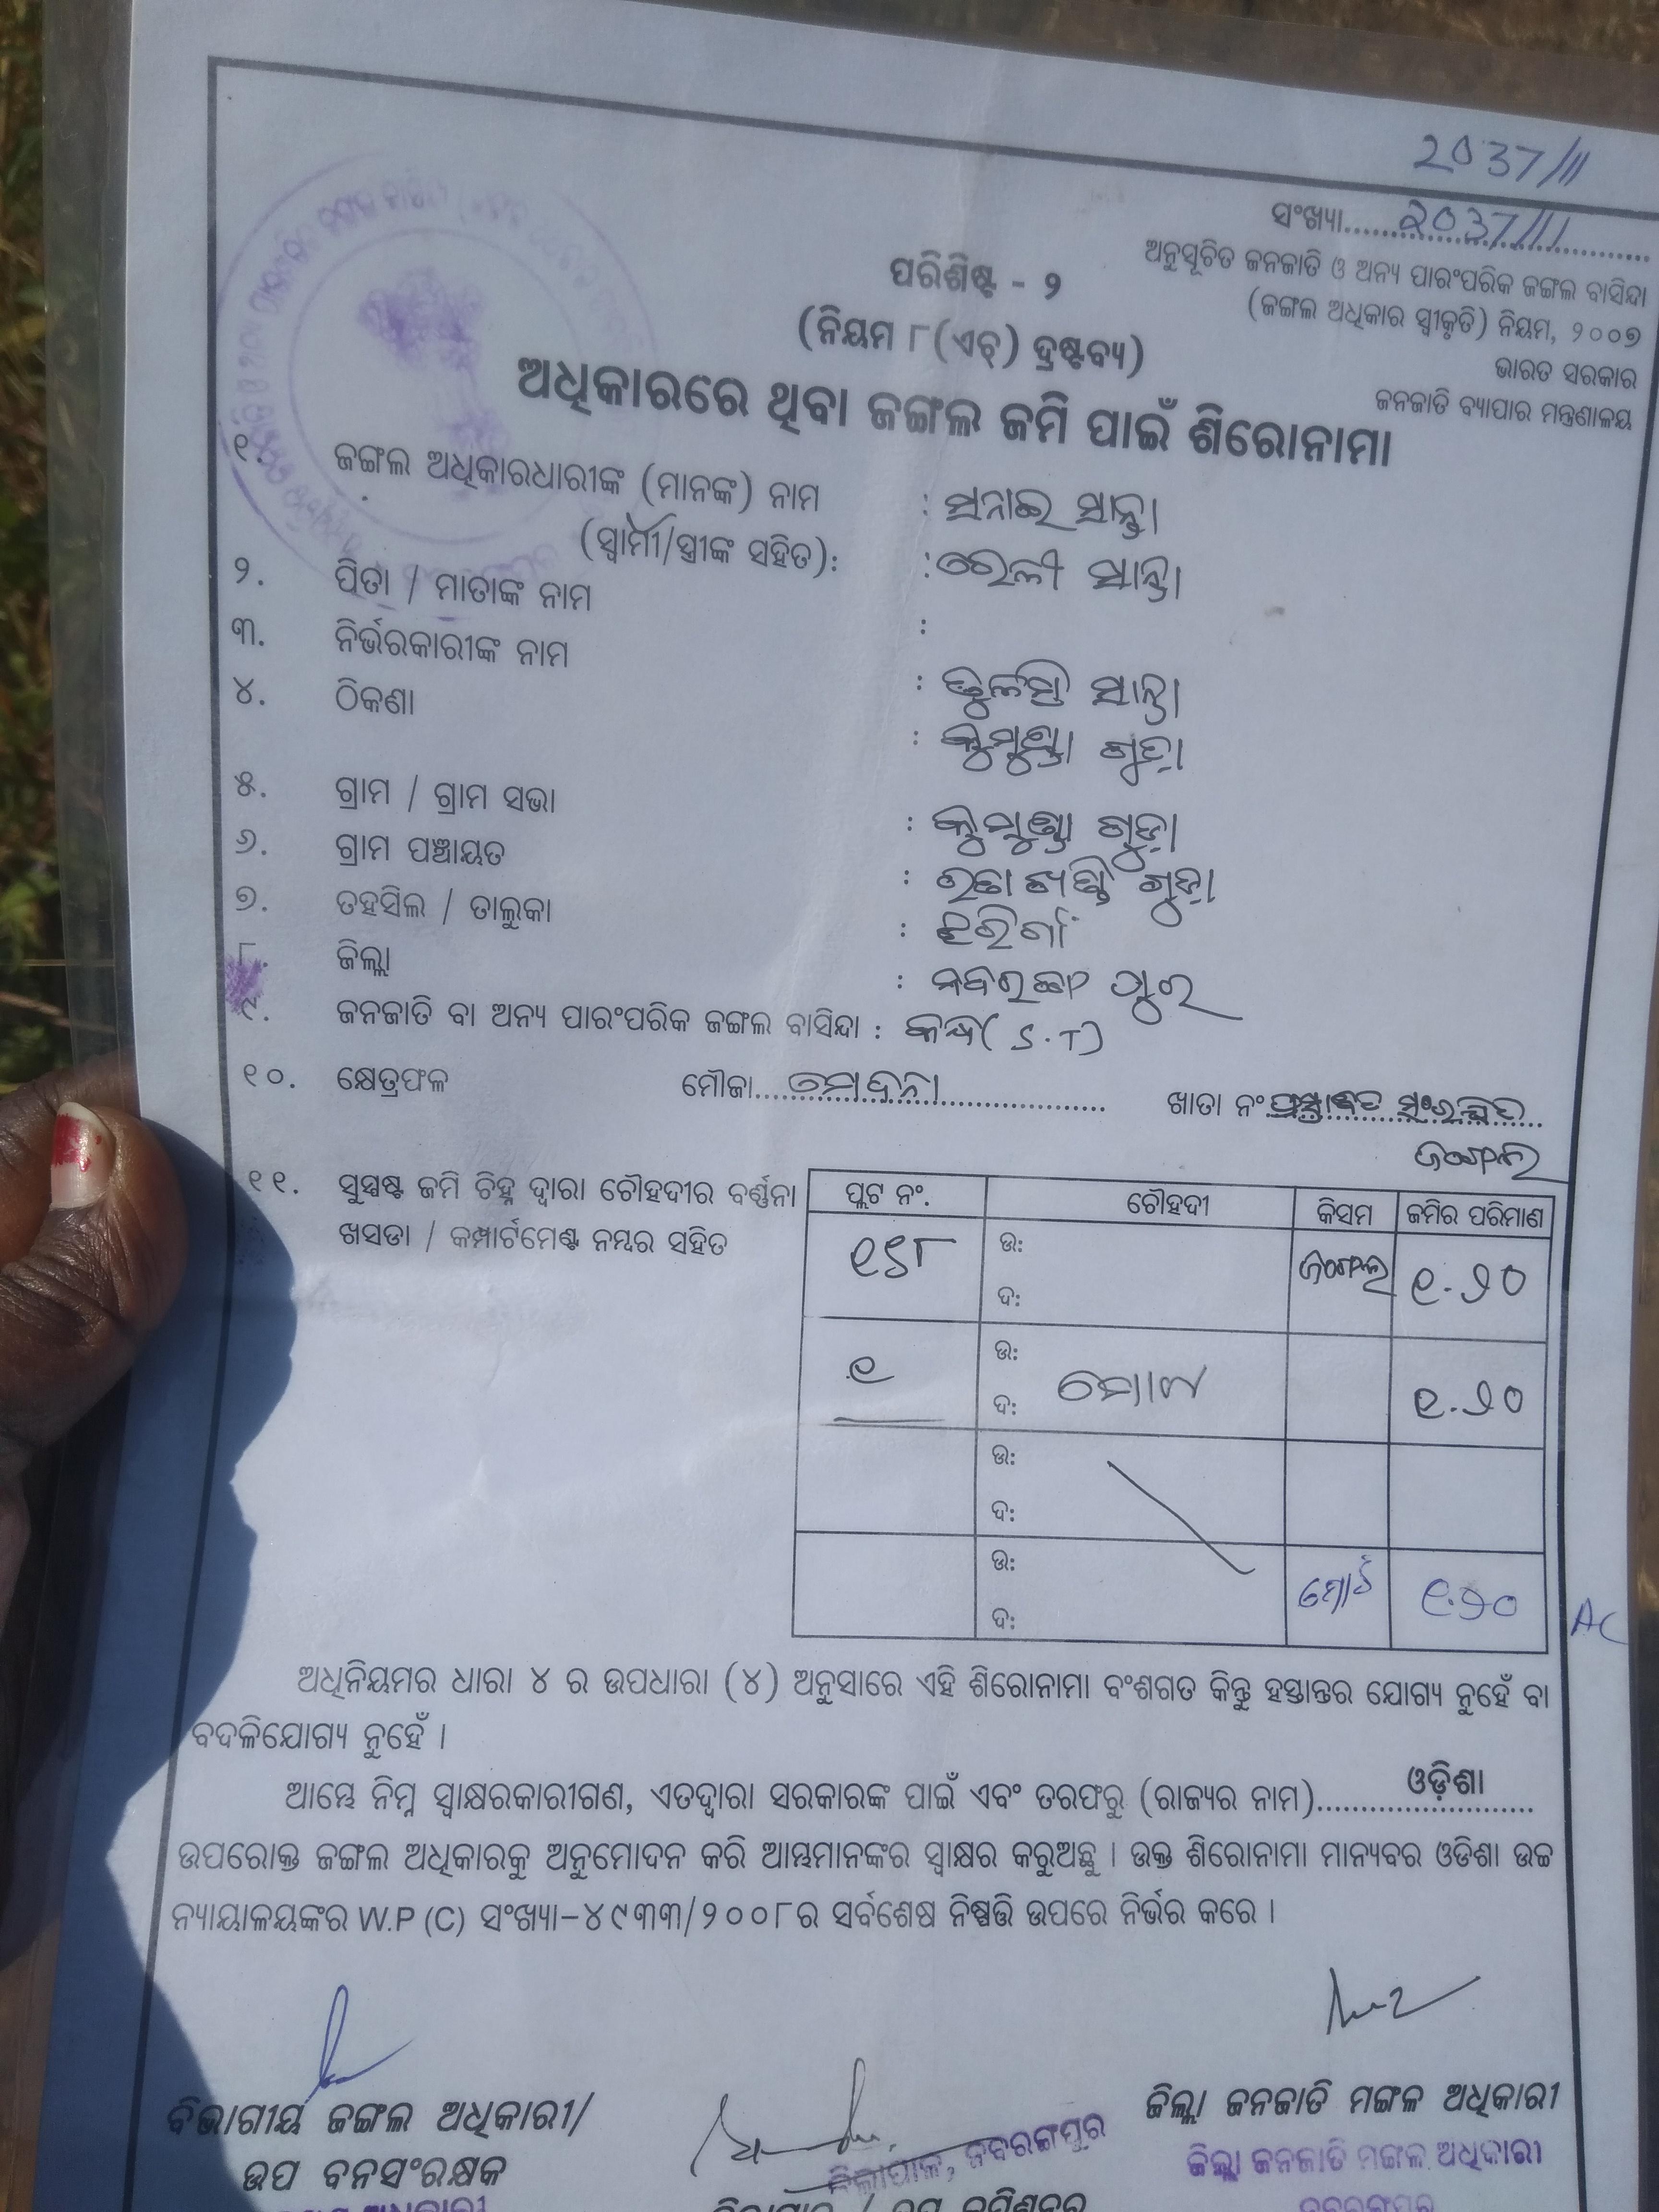 2037/11
ସଂଖ୍ୟା..........2037/11..........
ଅନୁସୂଚିତ ଜନଜାତି ଓ ଅନ୍ୟ ପାରଂପରିକ ଜଙ୍ଗଲ ବାସିନ୍ଦା
(ଜଙ୍ଗଲ ଅଧିକାର ସ୍ୱୀକୃତି) ନିୟମ, ୨୦୦୭
ଭାରତ ସରକାର
ଜନଜାତି ବ୍ୟାପାର ମନ୍ତ୍ରଣାଳୟ
ପରିଶିଷ୍ଟ - ୨
(ନିୟମ ୮(ଏଚ୍) ଦ୍ରଷ୍ଟବ୍ୟ)
ଅଧିକାରରେ ଥିବା ଜଙ୍ଗଲ ଜମି ପାଇଁ ଶିରୋନାମା
୧. ଜଙ୍ଗଲ ଅଧିକାରଧାରୀଙ୍କ (ମାନଙ୍କ) ନାମ : ସନାଇ ସାନ୍ତା
(ସ୍ୱାମୀ/ସ୍ତ୍ରୀଙ୍କ ସହିତ): : ରେଳୀ ସାନ୍ତା
୨. ପିତା / ମାତାଙ୍କ ନାମ :
୩. ନିର୍ଭରକାରୀଙ୍କ ନାମ : ତୁଳସୀ ସାନ୍ତା
୪. ଠିକଣା : ଗୁଡ଼ା
୫. ଗ୍ରାମ / ଗ୍ରାମ ସଭା : ଗୁଡ଼ା
୬. ଗ୍ରାମ ପଞ୍ଚାୟତ : ଗୁଡ଼ା
୭. ତହସିଲ / ତାଲୁକା : ଝରିଗାଁ
୮. ଜିଲ୍ଲା : ନବରଙ୍ଗ ପୁର
୯. ଜନଜାତି ବା ଅନ୍ୟ ପାରଂପରିକ ଜଙ୍ଗଲ ବାସିନ୍ଦା : କନ୍ଧ (S.T)
୧୦. କ୍ଷେତ୍ରଫଳ ମୌଜା.................... ଖାତା ନଂ ପ୍ରସ୍ତାବିତ ସଂରକ୍ଷିତ
ଜଙ୍ଗଲ
୧୧. ସୁସ୍ପଷ୍ଟ ଜମି ଚିହ୍ନ ଦ୍ୱାରା ଚୌହଦୀର ବର୍ଣ୍ଣନା
ଖସଡା / କମ୍ପାର୍ଟମେଣ୍ଟ ନମ୍ବର ସହିତ
ପ୍ଲଟ ନଂ. ଚୌହଦୀ କିସମ ଜମିର ପରିମାଣ
୧୫୮ ଉ: ଜଙ୍ଗଲ ୧.୨୦
ଦ:
୧ ଉ: ୧.୨୦
ଦ:
ଉ:
ଦ:
ଉ: ମୋଟ ୧.୨୦ AC
ଦ:
ଅଧିନିୟମର ଧାରା ୪ ର ଉପଧାରା (୪) ଅନୁସାରେ ଏହି ଶିରୋନାମା ବଂଶଗତ କିନ୍ତୁ ହସ୍ତାନ୍ତର ଯୋଗ୍ୟ ନୁହେଁ ବା
ବଦଳିଯୋଗ୍ୟ ନୁହେଁ ।
ଆମ୍ଭେ ନିମ୍ନ ସ୍ୱାକ୍ଷରକାରୀଗଣ, ଏତଦ୍ୱାରା ସରକାରଙ୍କ ପାଇଁ ଏବଂ ତରଫରୁ (ରାଜ୍ୟର ନାମ)..........ଓଡ଼ିଶା..........
ଉପରୋକ୍ତ ଜଙ୍ଗଲ ଅଧିକାରକୁ ଅନୁମୋଦନ କରି ଆମ୍ଭମାନଙ୍କର ସ୍ୱାକ୍ଷର କରୁଅଛୁ । ଉକ୍ତ ଶିରୋନାମା ମାନ୍ୟବର ଓଡିଶା ଉଚ୍ଚ
ନ୍ୟାୟାଳୟଙ୍କର W.P (C) ସଂଖ୍ୟା–୪୯୩୩/୨୦୦୮ର ସର୍ବଶେଷ ନିଷ୍ପତ୍ତି ଉପରେ ନିର୍ଭର କରେ ।
ବିଭାଗୀୟ ଜଙ୍ଗଲ ଅଧିକାରୀ/
ଉପ ବନସଂରକ୍ଷକ
ଜିଲ୍ଲାପାଳ, ନବରଙ୍ଗପୁର
ଜିଲ୍ଲାପାଳ / ଉପ କମିଶନର
ଜିଲ୍ଲା ଜନଜାତି ମଙ୍ଗଳ ଅଧିକାରୀ
ଜିଲ୍ଲା ଜନଜାତି ମଙ୍ଗଳ ଅଧିକାରୀ
ନବରଙ୍ଗପୁର